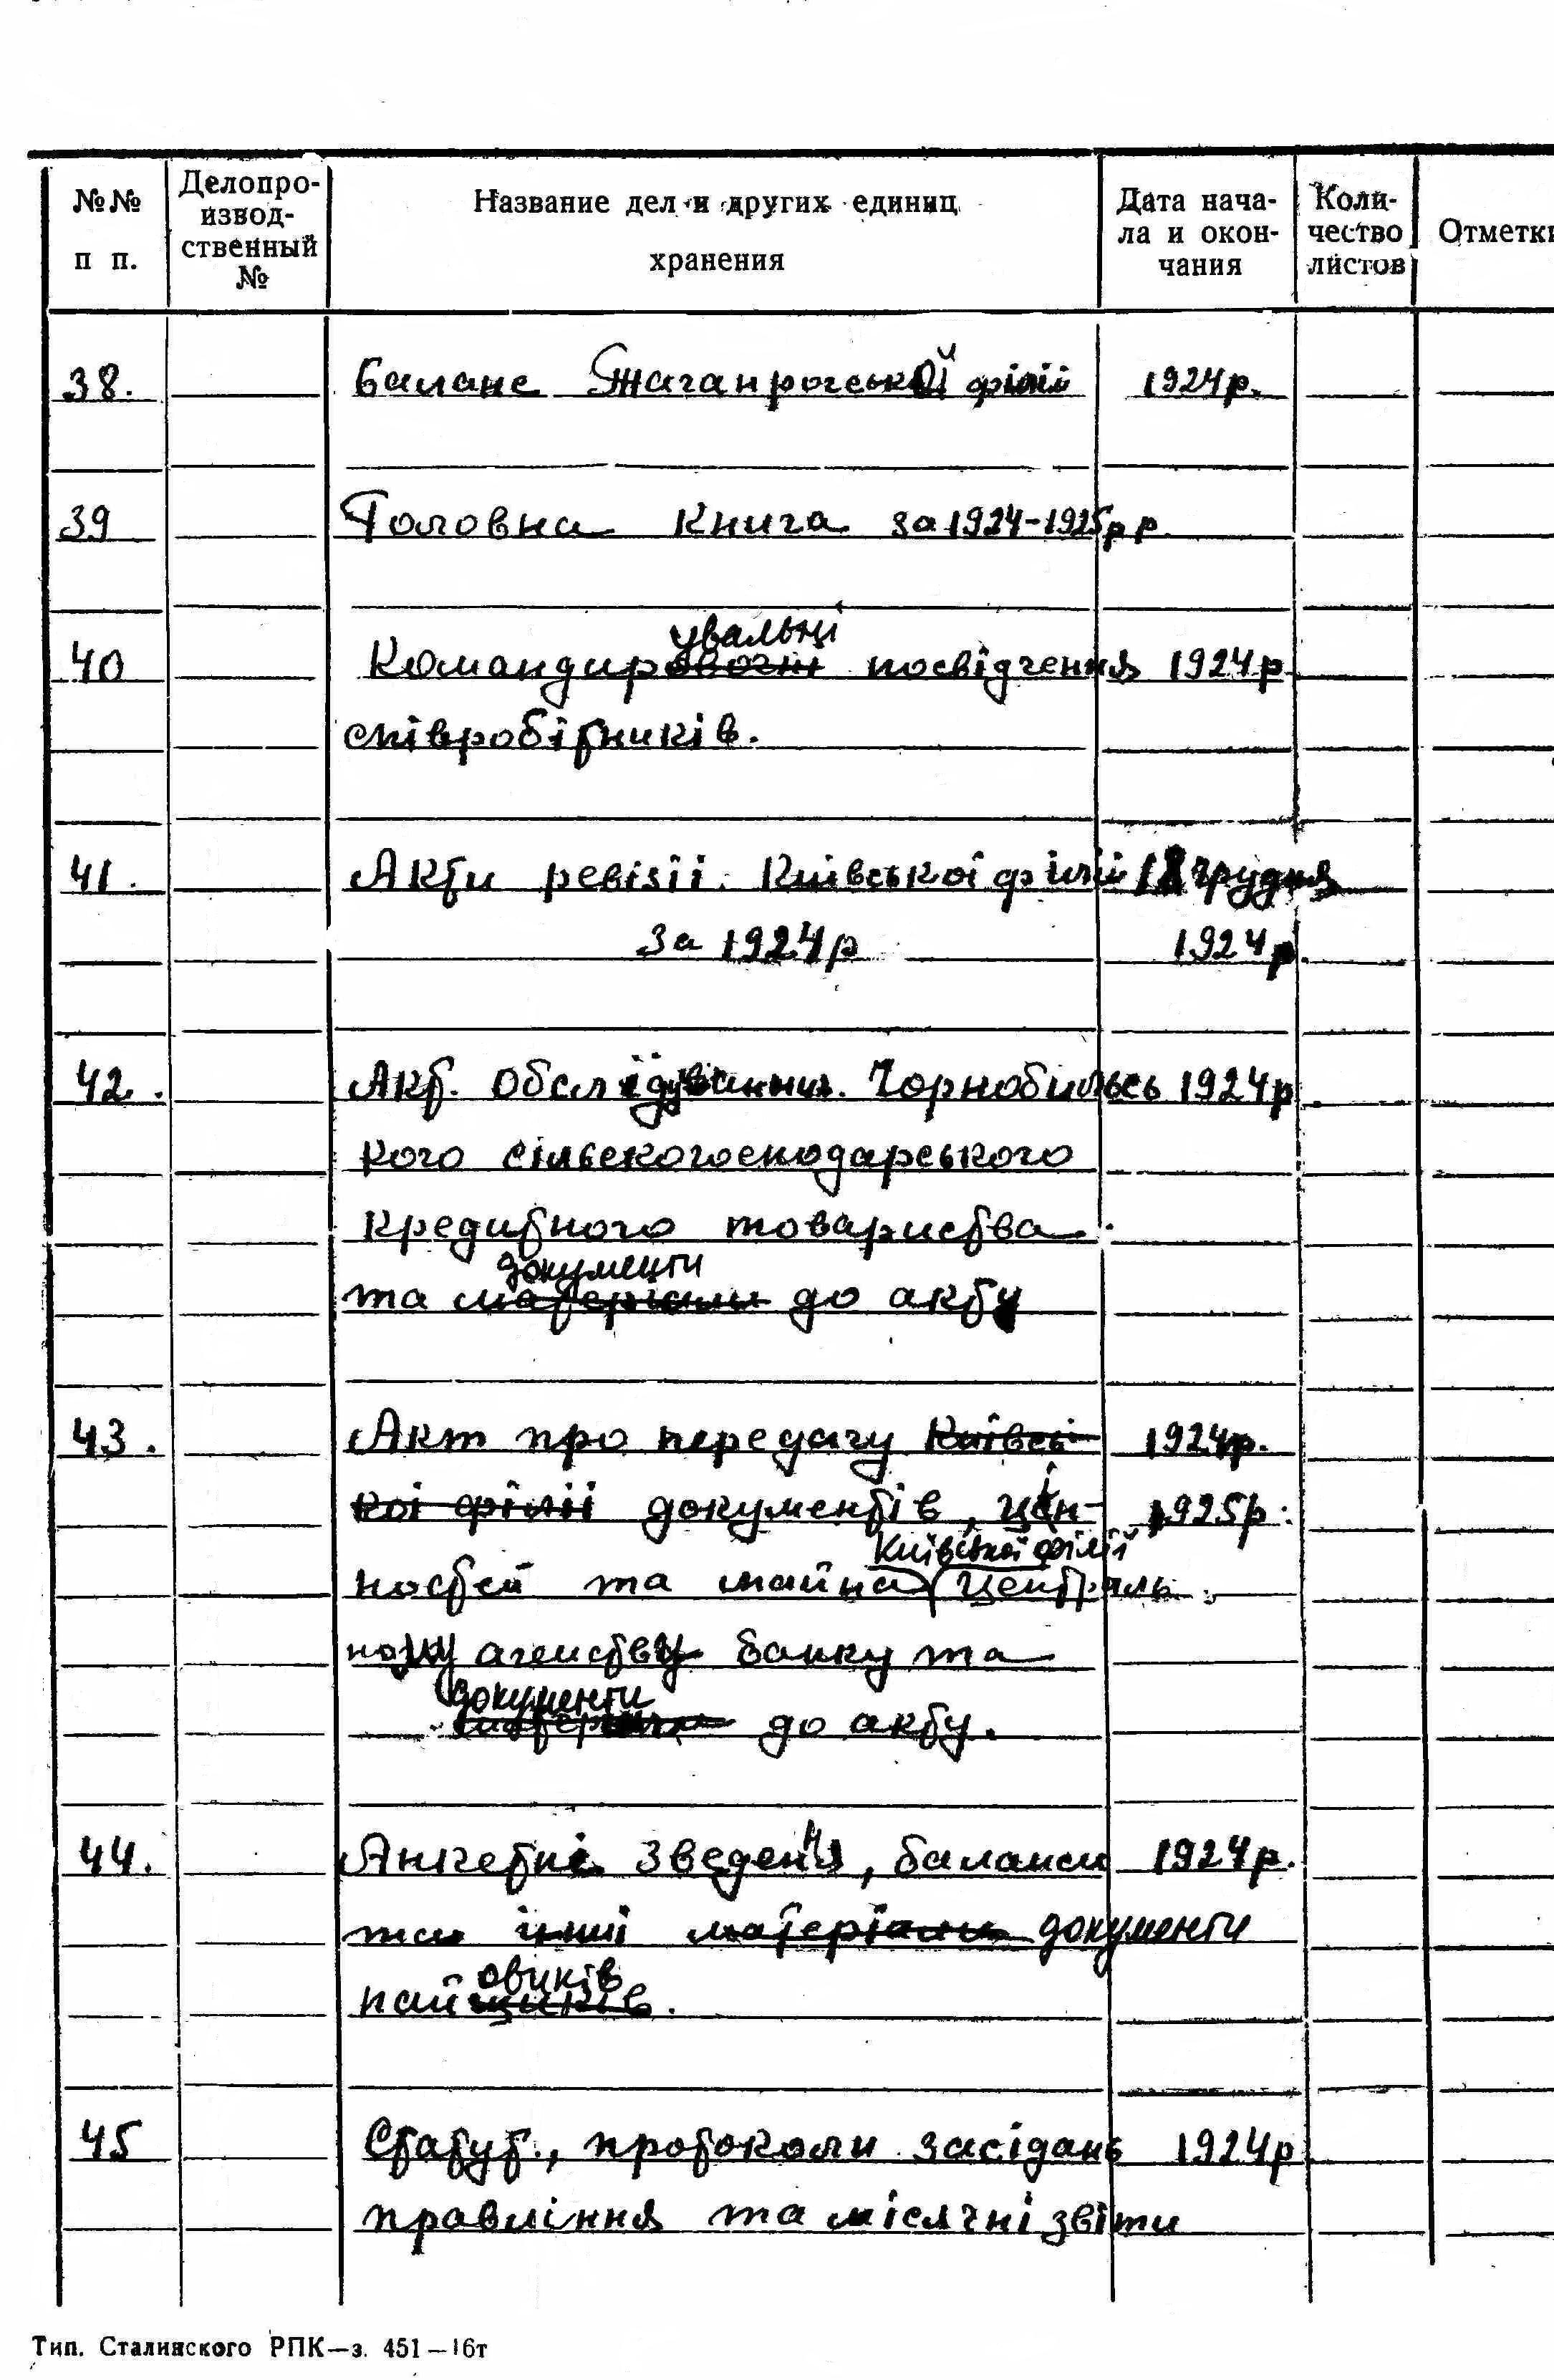 №№ п п.
Делопро-
извод-
ственный
№
Название дел и других единиц
хранения
Дата нача-
ла и окон-
чания
Коли-
чество
листов
Отметки
38. Баланс Таганрогської філії 1924р.
39 Головна книга за 1924-1925рр.
увальні
40 Командировочні посвідчення 1924р
співробітників.
41. Акти ревізіі Київської філії 18 грудня
за 1924р 1924р.
42. Акт обслідування Чорнобильсь 1924р
кого сільскогосподарського
кредитного товариства
документи
та матеріали до акту
43. Акт про передачу Київсь 1924р.
коі філіі документів, цін- 1925р.
Київської філії
ностей та майна Централь
ному агенству банку та
документи
матеріали до акту.
44. Анкетні зведення, баланси 1924р.
та інші матеріали документи
овиків
пайщиків.
45 Статут, протоколи засідань 1924р
правління та місячні звіти
Тип. Сталинского РПК—з. 451—16т